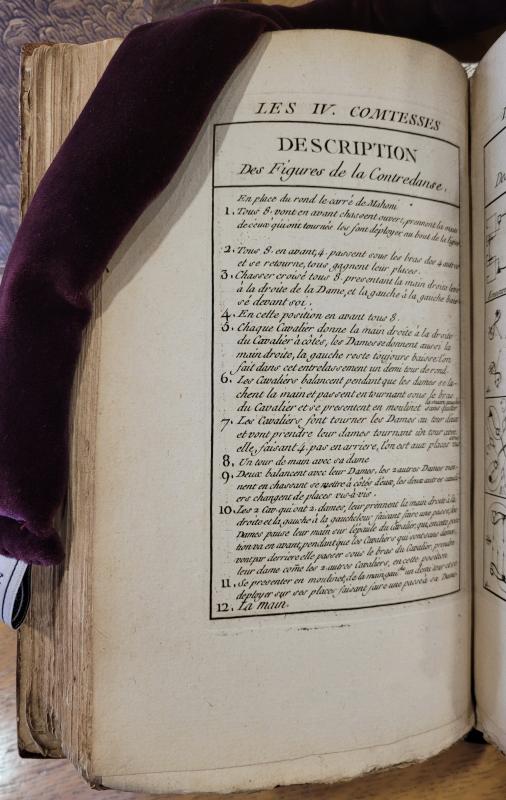 LES IV. COMTESSES
DESCRIPTION
Des Figures de la Contredanse.
En place du rond le carré de Mahoni
1. Tous 8. vont en avant chassent ouver, prennent la main
de ceux qui ont tournés les font déployer au bout de la ligne
2. Tous 8. en avant, 4. passent sous les bras des 4 autres
et se retourne, tous gagnent leur places.
3. Chasser croisé tous 8. presentant la main droite
à la droite de la Dame, et la gauche à la gauche
sé devant soi.
4. En cette position en avant tous 8.
5. Chaque Cavalier donne la main droite à la droite
du Cavalier à côtés, les Dames se donnent aussi la
main droite, la gauche reste toujours baisse: l'on
fait dans cet entrelassement un demi tour de rond.
6. Les Cavaliers balancent pendant que les dames se la-
chent la main et passent en tournant sous le bras
du Cavalier et se presentent en moulinet
7. Les Cavaliers font tourner les Dames au tour
et vont prendre leur dames tournant un tour avec
elle, faisant 4. pas en arriere, l'on est aux places
8. Un tour de main avec sa dame
9. Deux balancent avec leur Dames, les 2 autres Dames vien-
nent en chassant se mettre à côtés d'eux, les deux autres cavali-
ers changent de places vis-à-vis.
10. Les 2 Cav. qui ont 2. dames, leur prennent la main droite à la
droite et la gauche à la gauche leur faisant faire une passe,
Dames passe leur main sur l'épaule du Cavalier, qui, en cette posi-
tion va en avant, pendant que les Cavaliers qui sont sans dames,
vont par derriere elle passer sous le bras du Cavalier, prendre
leur dame come les 2 autres Cavaliers, en cette position
11. Se presenter en moulinet, de la main gau.che un demi tour et
deployer sur ses places faisant faire une passe à sa Dame
12. La main.